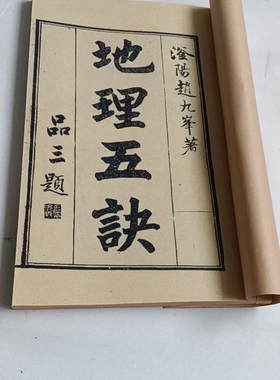 滏陽趙九峯著
地理五訣
品三題